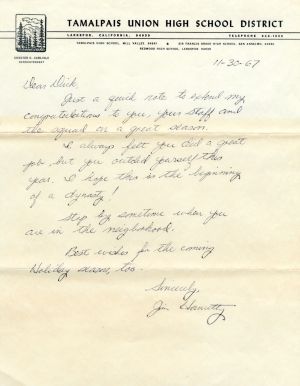 TAMALPAIS UNION HIGH SCHOOL DISTRICT
LARKSPUR, CALIFORNIA, 94939
TAMALPAIS HIGH SCHOOL, MILL VALLEY 94941
SIR FRANCIS DRAKE HIGH SCHOOL, SAN ANSELMO, 94960
REDWOOD HIGH SCHOOL, LARKSPUR 94939
SUPERINTENDENT
11-30-67
Dear Dick,
Just a quick note to extend my
congratulations to you, your staff and
the squad on a great season.
I always felt you did a great
job but you outdid yourself this
year. I hope this is the beginning
of a dynasty!
Stop by sometime when you
are in the neighborhood.
Best wishes for the coming
Holiday season, too.
Sincerely,
Jim